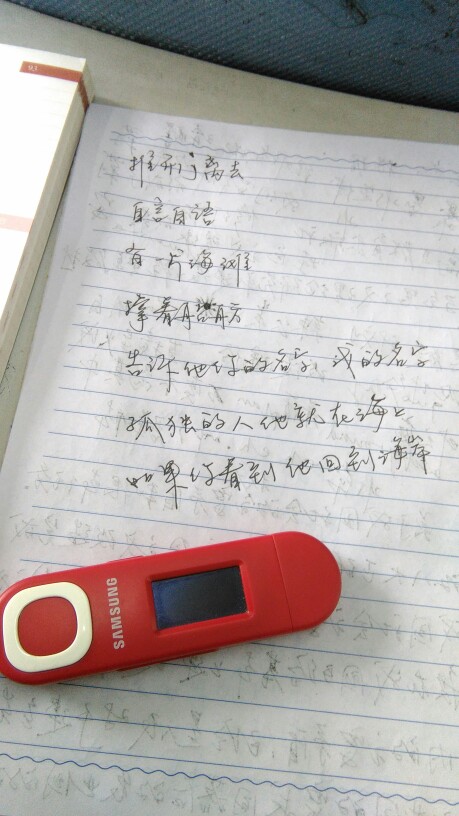 推开门离去
自言自语
有一片海滩
撑着船舫
告诉他你的名字 我的名字
孤独的人他就在海上
如果你看到他回到海岸
SAMSUNG